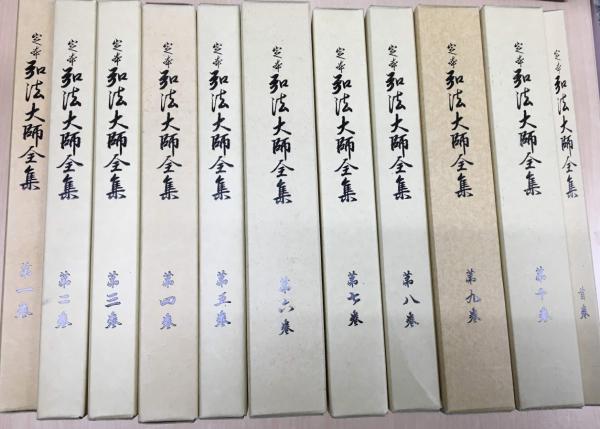 定本 弘法大師全集 第一巻
定本 弘法大師全集 第二巻
定本 弘法大師全集 第三巻
定本 弘法大師全集 第四巻
定本 弘法大師全集 第五巻
定本 弘法大師全集 第六巻
定本 弘法大師全集 第七巻
定本 弘法大師全集 第八巻
定本 弘法大師全集 第九巻
定本 弘法大師全集 第十巻
定本 弘法大師全集 首巻